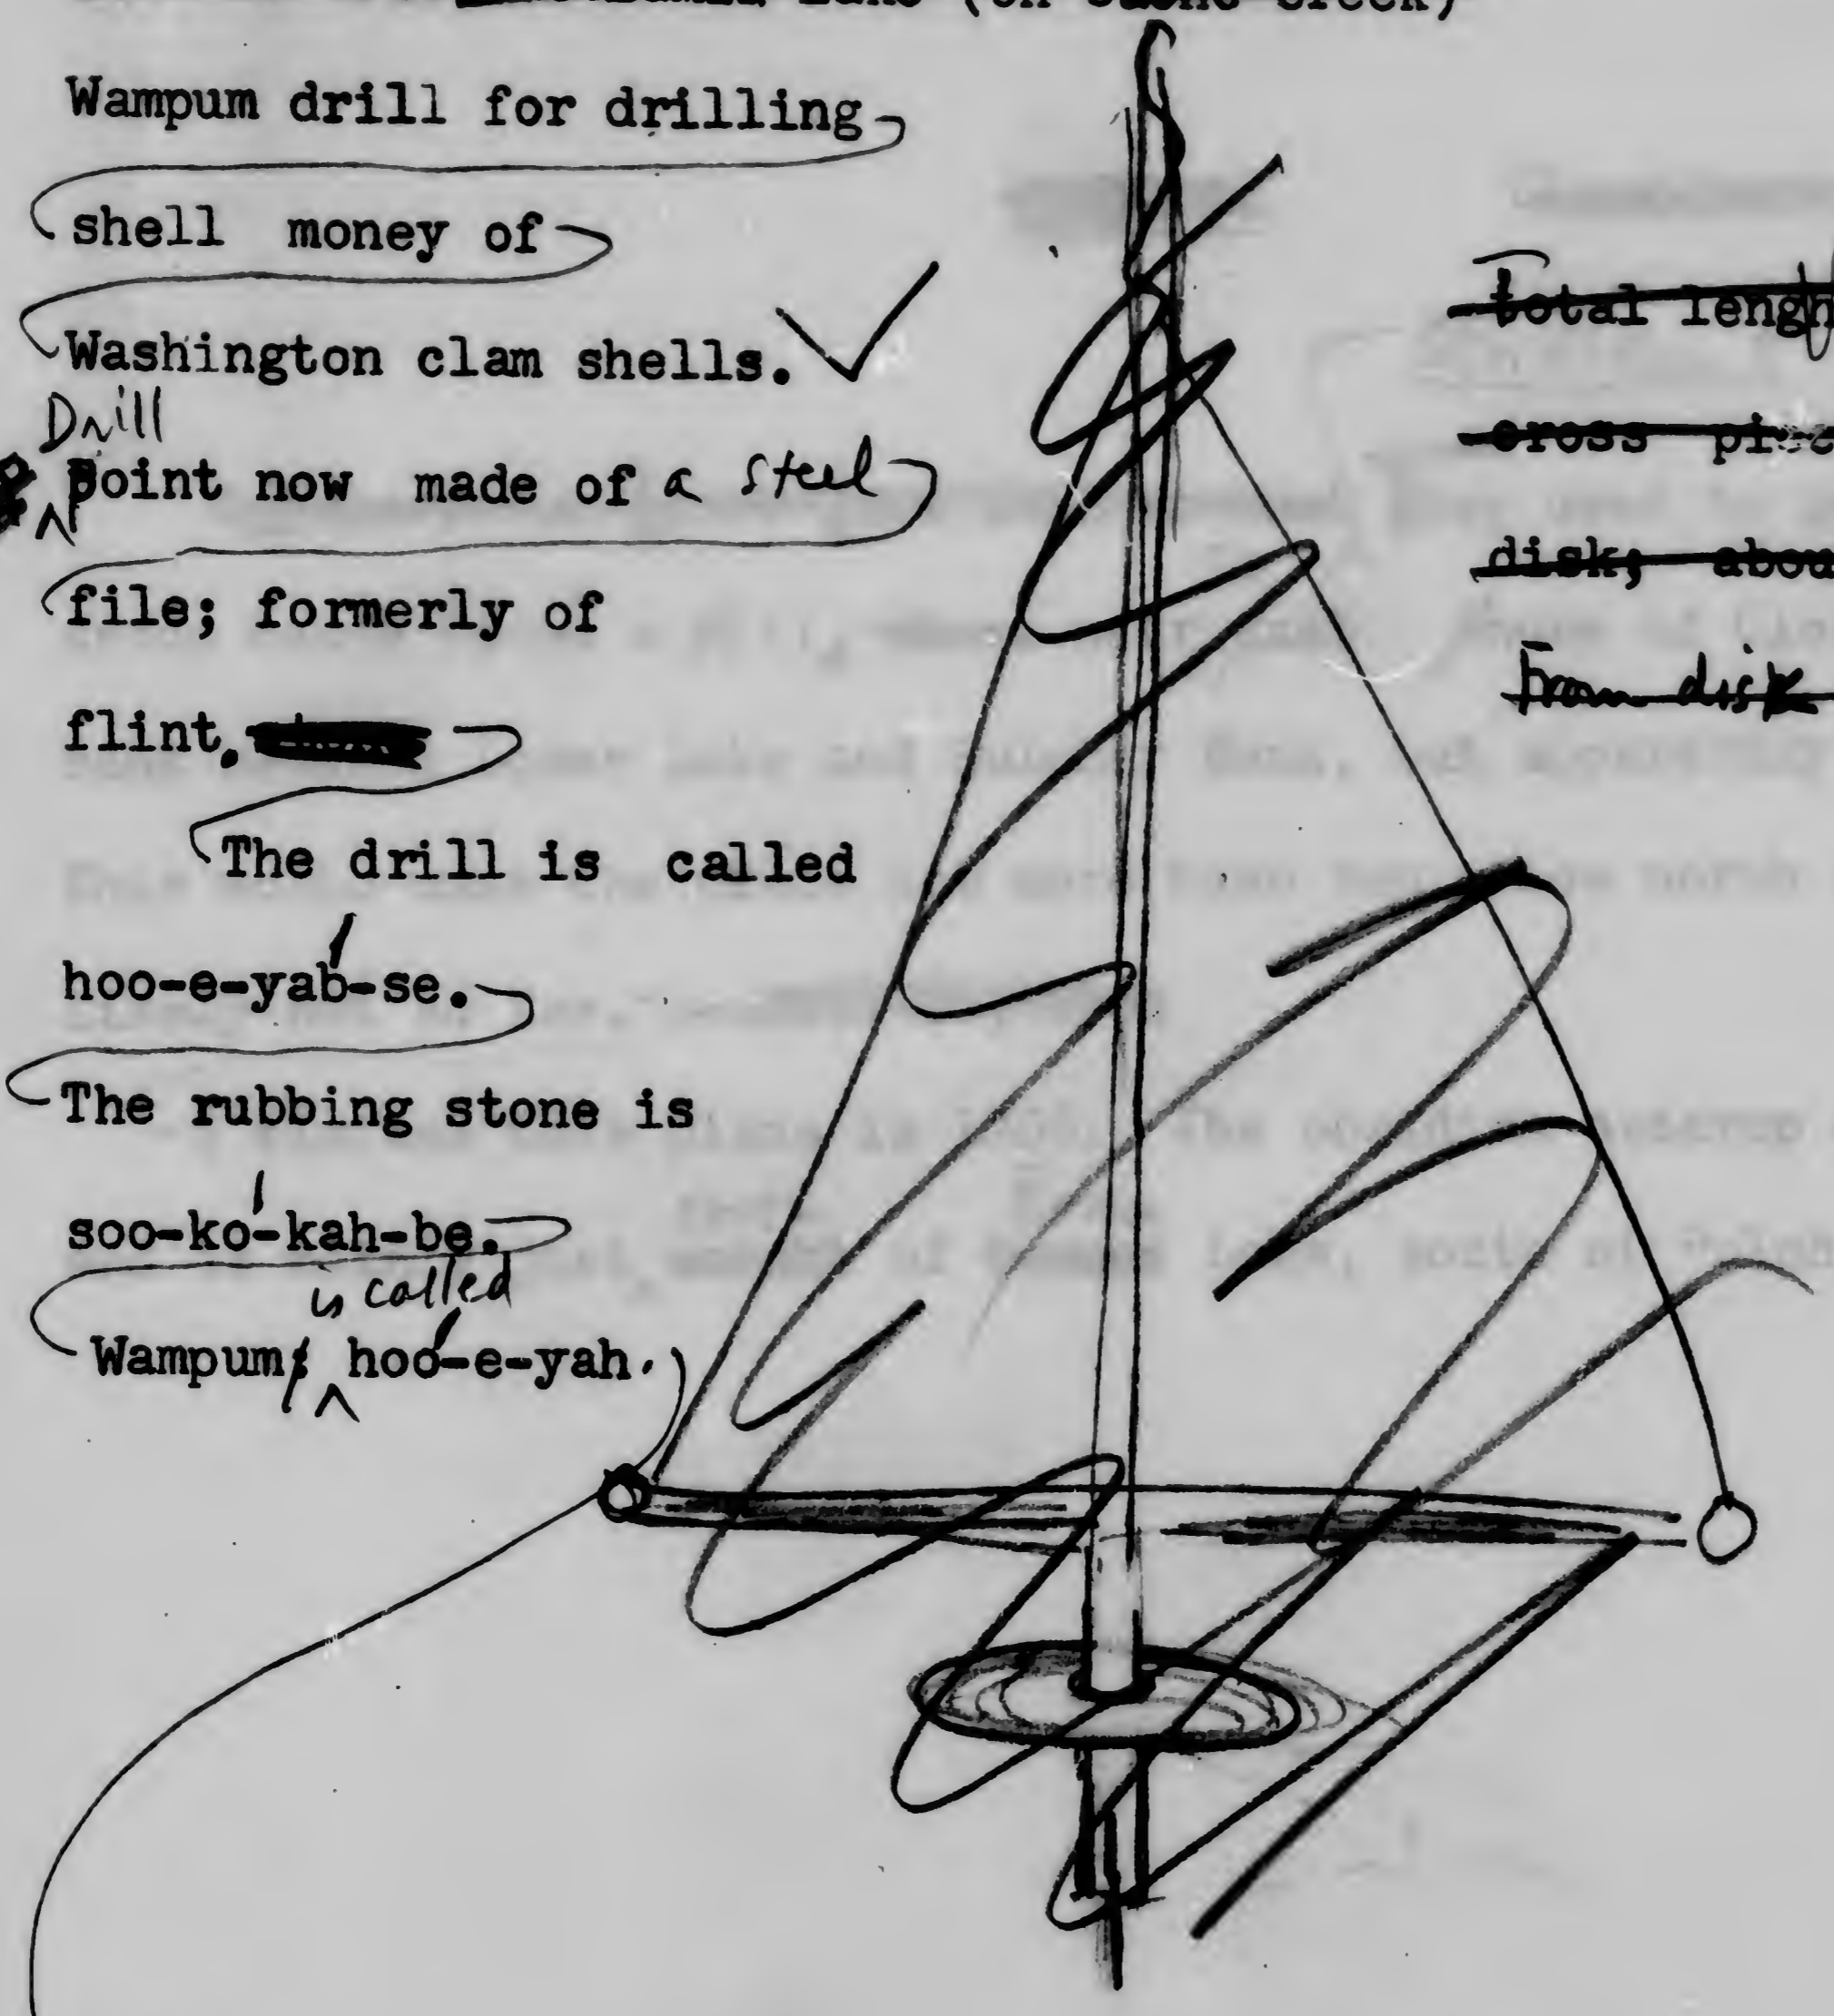 Lake (on Cache Creek)
Wampum drill for drilling
shell money of
Washington clam shells.
Drill
point now made of a steel
file; formerly of
flint.
The drill is called
hoo-e-yab́-se.
The rubbing stone is
soo-kó-kah-be.
is called
Wampum hoó-e-yah.
Total length
cross
disk; abou
From disk